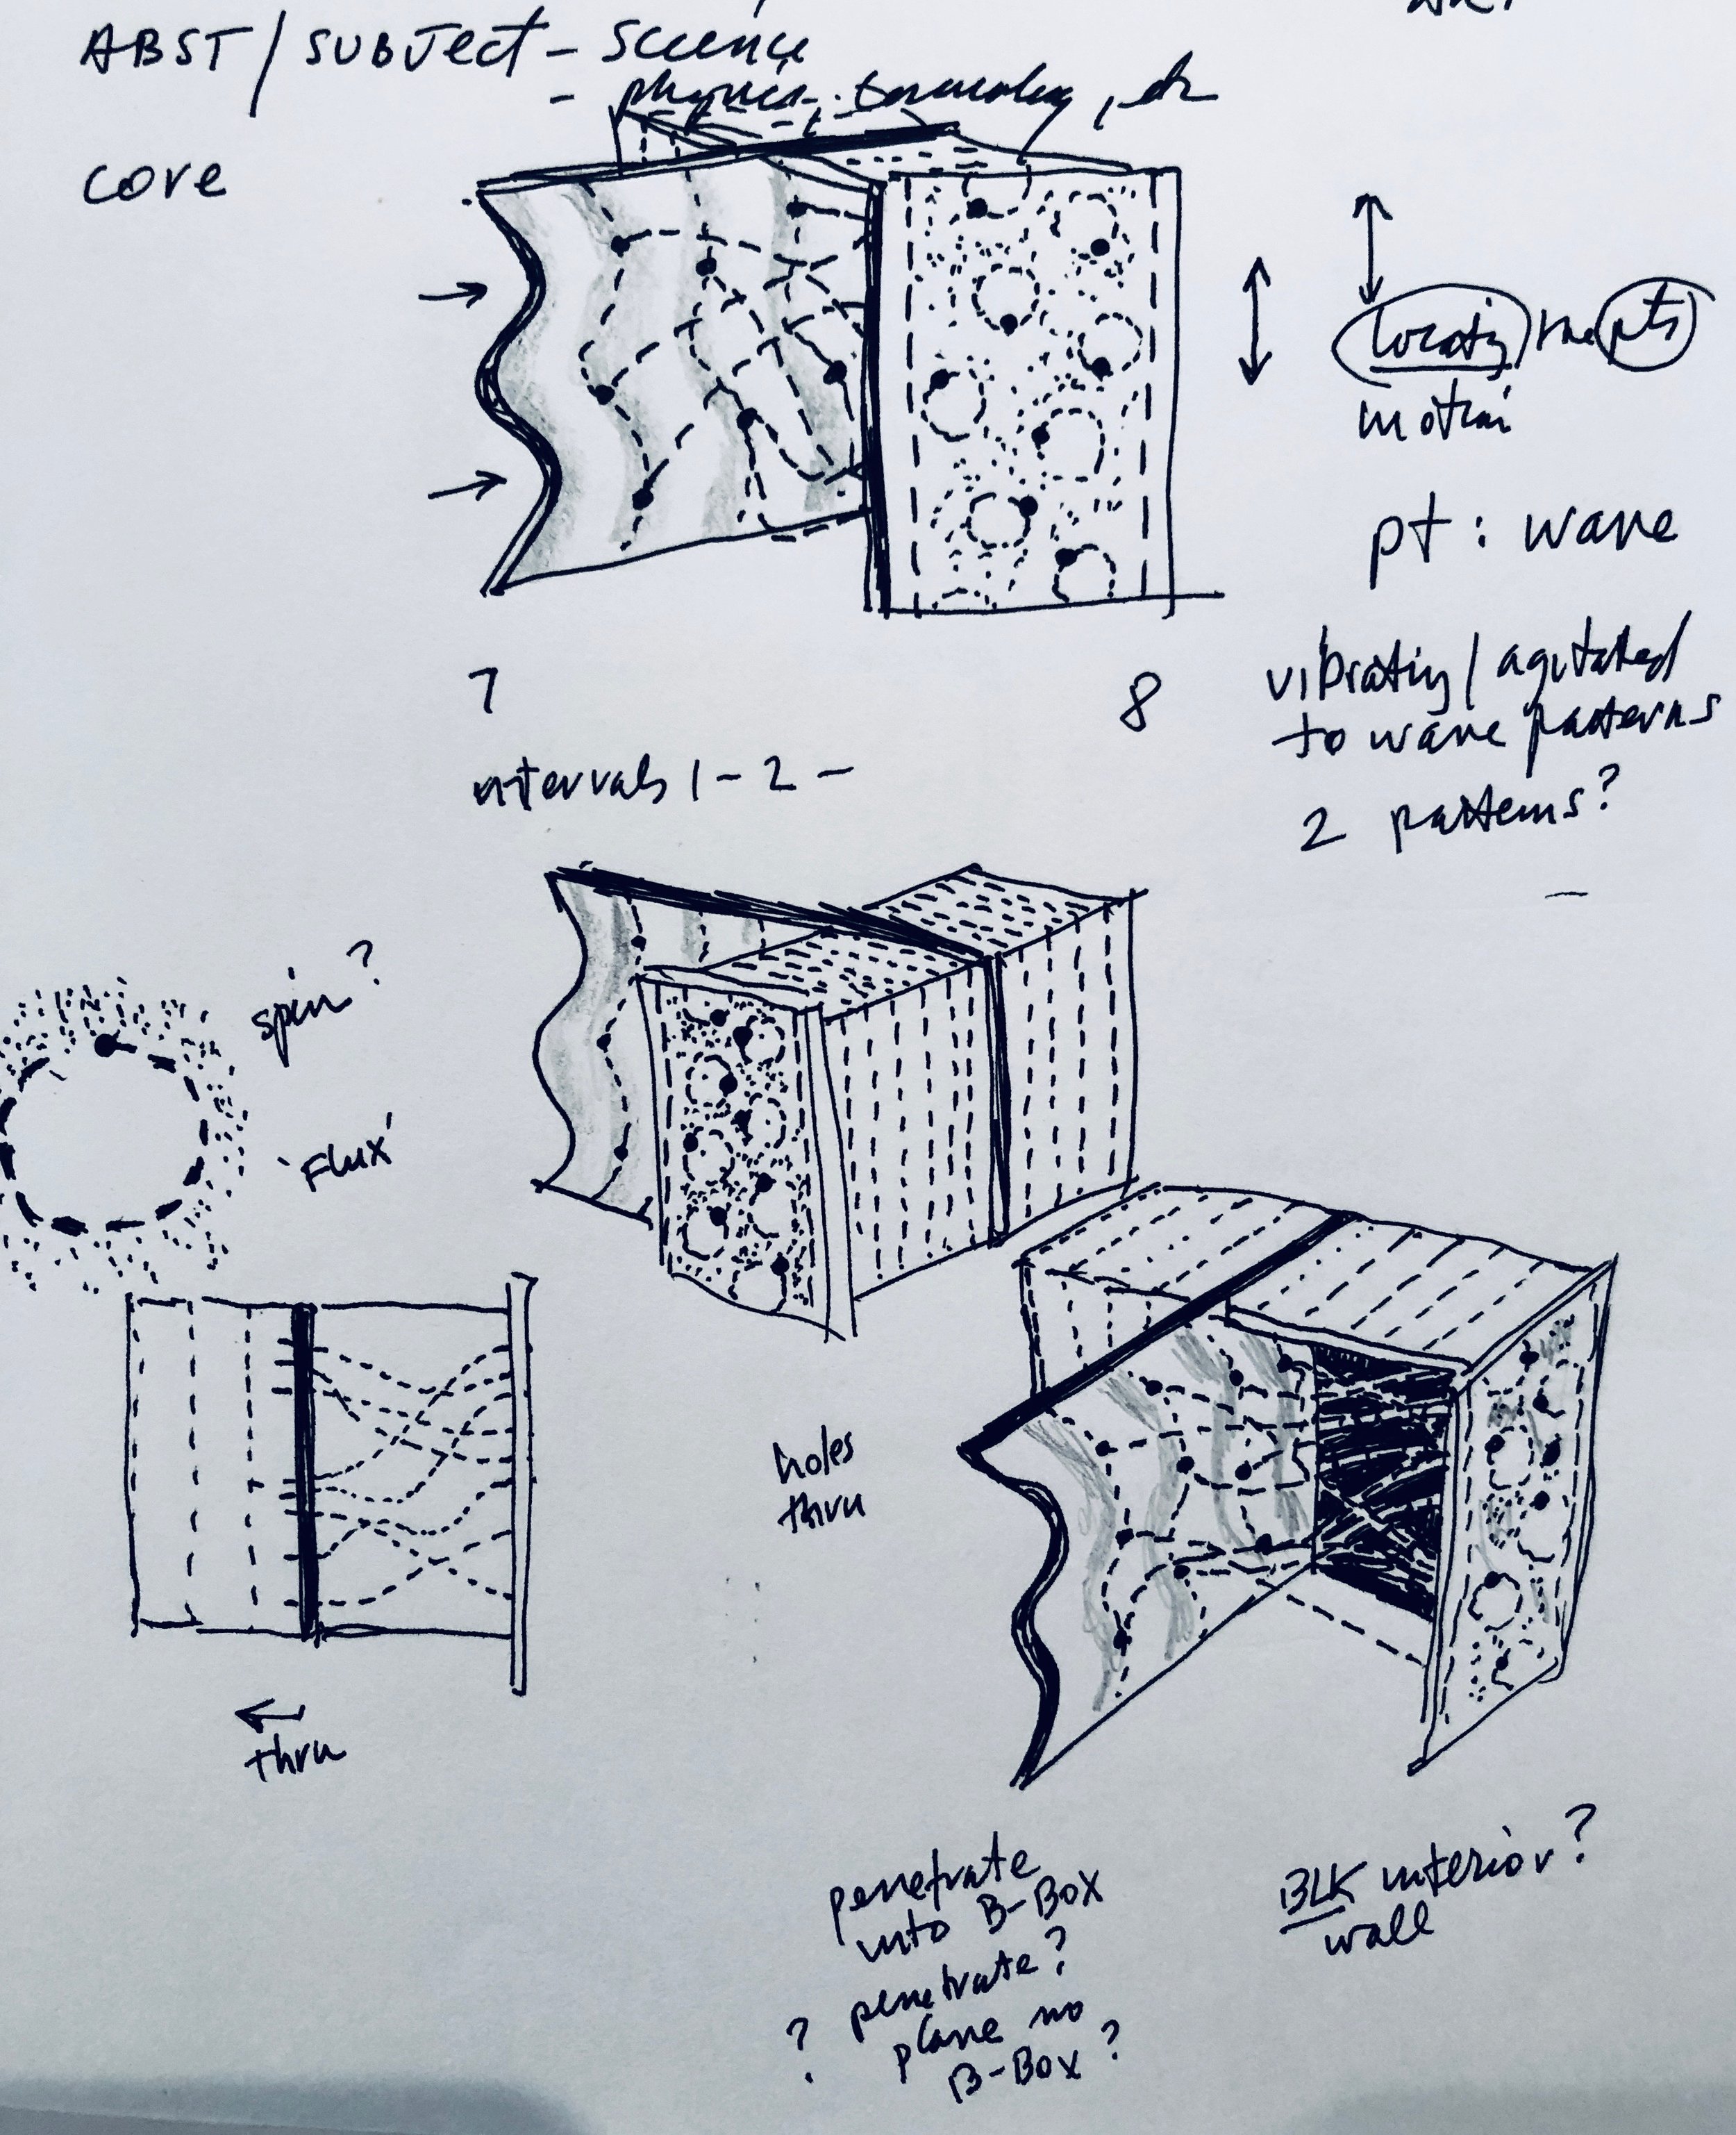 ABST / SUBJECT - SCIENCE
- physics, , etc
core
locating the pts
motion
pt : wave
7
8
vibrating / agitated
to wave patterns
intervals 1 - 2 -
2 patterns?
spin ?
'Flux'
holes
thru
thru
penetrate
into B-BOX
penetrate?
? plane no
B-BOX ?
BLK interior?
wall